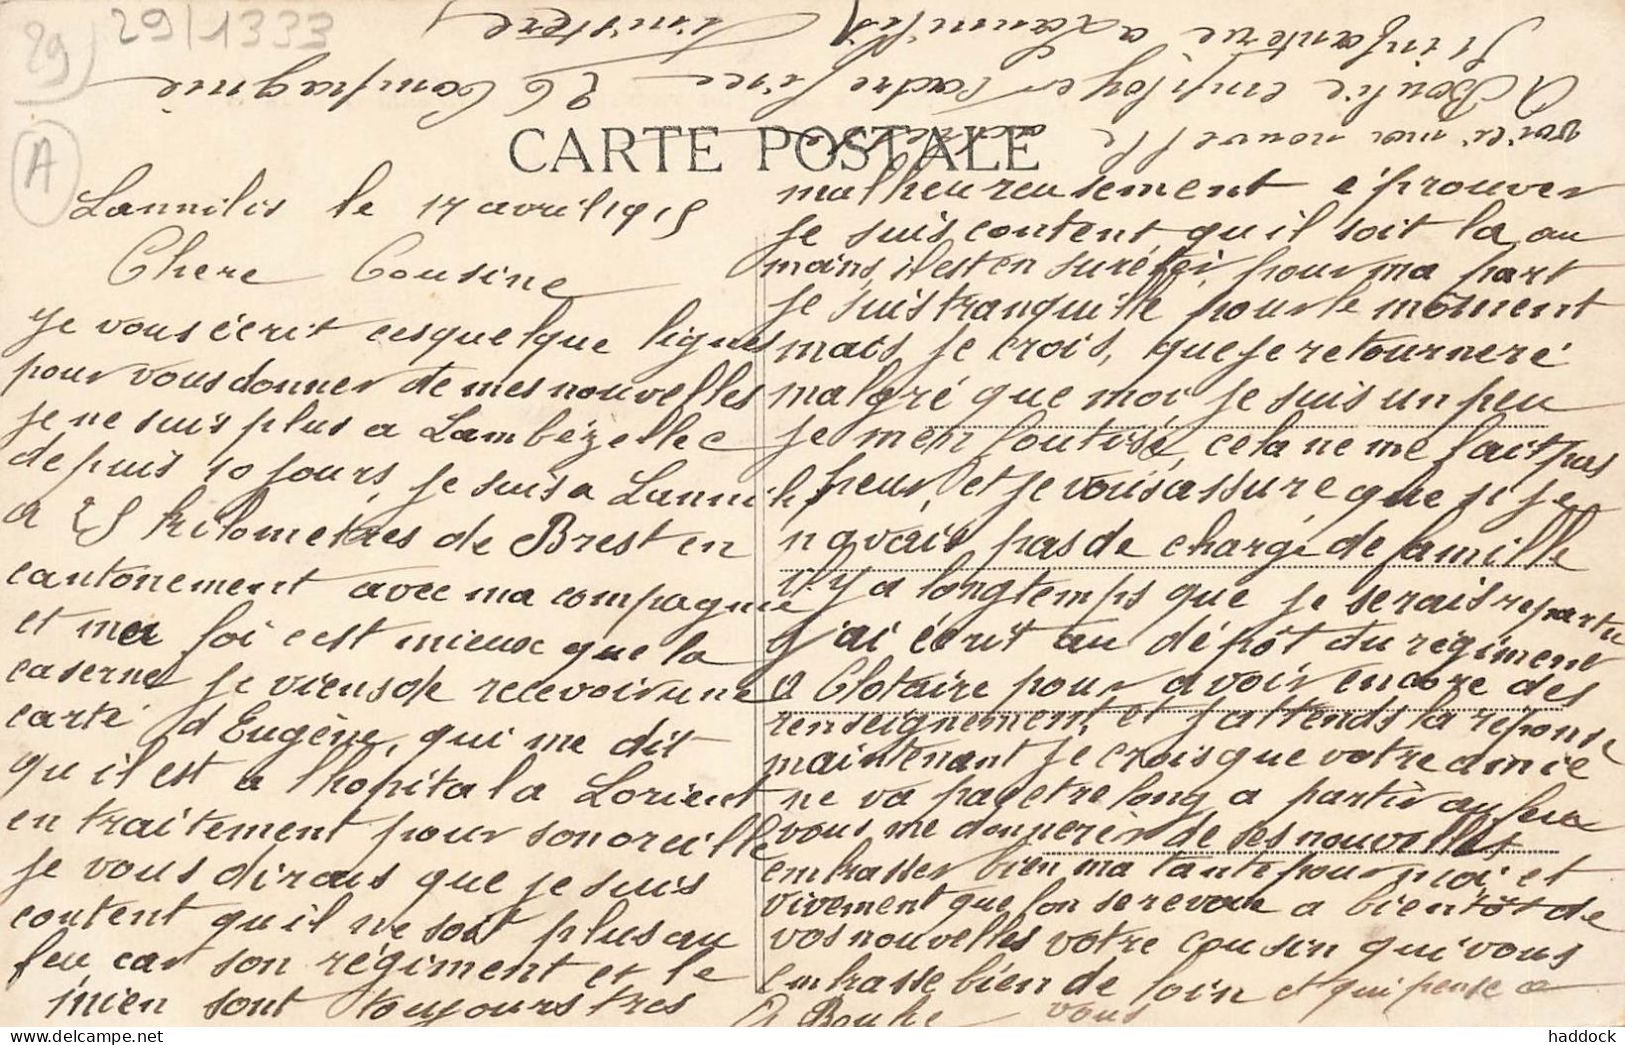 29/1333
29
A
CARTE POSTALE
Lannilis le 17 avril 1915
Chere Cousine
Je vous écrit ces quelque lignes
pour vous donner de mes nouvelles
je ne suis plus a Lambézellec
depuis 10 jours, je suis a Lannilis
a 25 kilometres de Brest en
cantonement avec ma compagnie
et ma foi c est mieux que la
caserne je viens de recevoir une
carte d'Eugène, qui me dit
qu il est a l hopital a Lorient
en traitement pour son oreille
je vous dirais que je suis
content qu il ne soit plus au
feu car son régiment et le
mien sont toujours tres
malheureusement éprouver
je suis content qu il soit la au
moins, il est en sureté, pour ma part
je suis tranquille pour le moment
mais je crois, que je retourneré
malgré que moi je suis un peu
je m en , cela ne me fait pas
peur, et je vous assure que si je
n avais pas de charge de famille
il y a longtemps que je serais repartu
j'ai écrit au dépôt du régiment
a Clotaire pour avoir encore des
renseignement et j attends la réponse
maintenant je crois que votre amie
ne va pa etre long a partir au feu
vous me donnerer de ses nouvelles
embrasser bien ma tante pour moi et
vivement que l on se revoie a bientôt de
vos nouvelles votre cousin qui vous
embrasse bien de loin et qui pense a
vous
A Bouhe
voici ma nouvelle adresse
A employer cadre 26 Compagnie
infanterie a Lannilis Finistere
haddock